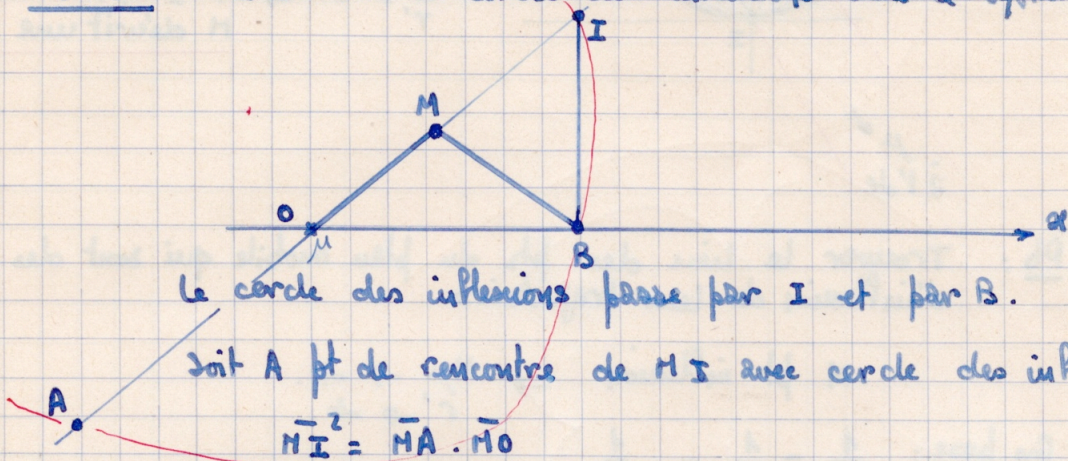 I
M
O
μ
B
x
Le cercle des inflexions passe par I et par B.
Soit A pt de rencontre de MI avec cercle des inf
A
M̄I² = M̄A . M̄O